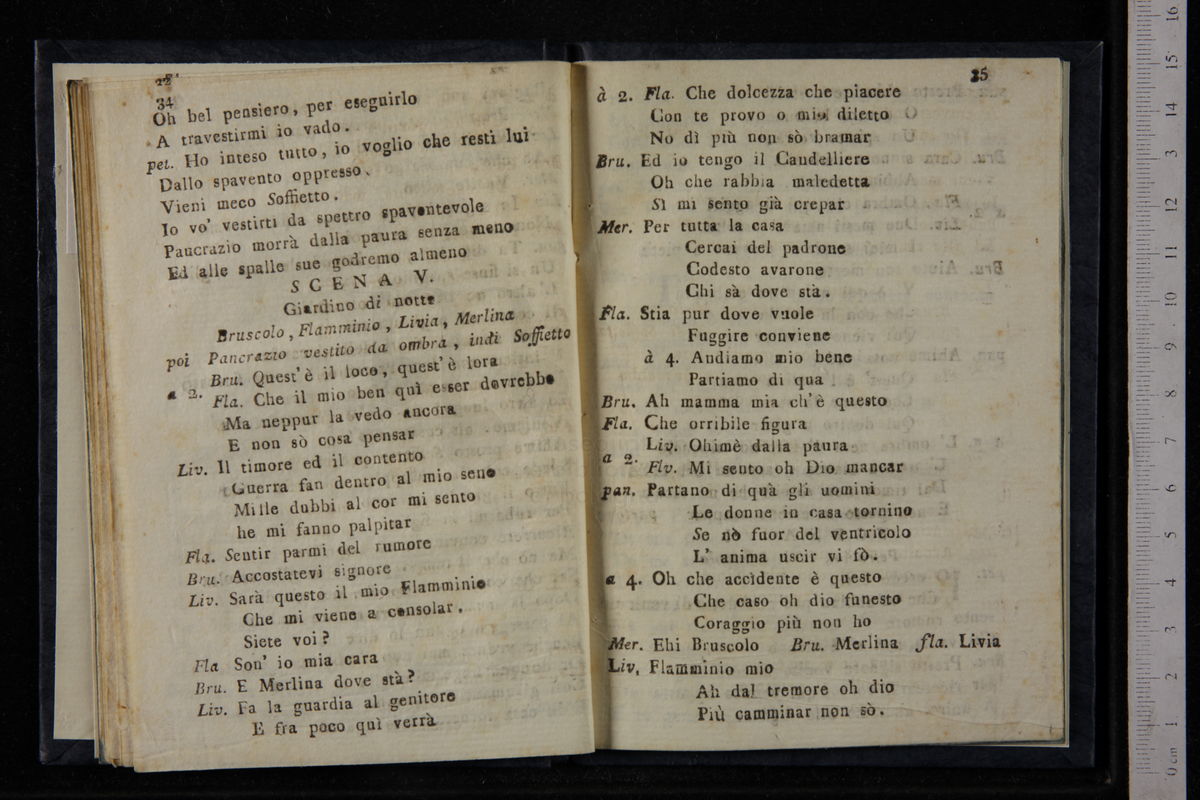 34
Oh bel pensiero, per eseguirlo
A travestirmi io vado.
pet. Ho inteso tutto, io voglio che resti lui
Dallo spavento oppresso.
Vieni meco Soffietto.
Io vo' vestirti da spettro spaventevole
Pancrazio morrà dalla paura senza meno
Ed alle spalle sue godremo almeno
SCENA V.
Giardino di notte
Bruscolo, Flamminio, Livia, Merlina
poi Pancrazio vestito da ombra, indi Soffietto
Bru. Quest'è il loco, quest'è lora
a 2. Fla. Che il mio ben quì esser dovrebbe
Ma neppur la vedo ancora
E non sò cosa pensar
Liv. Il timore ed il contento
Guerra fan dentro al mio seno
Mille dubbi al cor mi sento
he mi fanno palpitar
Fla. Sentir parmi del rumore
Bru. Accostatevi signore
Liv. Sarà questo il mio Flamminio
Che mi viene a consolar.
Siete voi?
Fla Son' io mia cara
Bru. E Merlina dove stà?
Liv. Fa la guardia al genitore
E fra poco quì verrà
35
à 2. Fla. Che dolcezza che piacere
Con te provo o mio diletto
No dì più non sò bramar
Bru. Ed io tengo il Candelliere
Oh che rabbia maledetta
Sì mi sento già crepar
Mer. Per tutta la casa
Cercai del padrone
Codesto avarone
Chi sà dove stà.
Fla. Stia pur dove vuole
Fuggire conviene
à 4. Andiamo mio bene
Partiamo di qua
Bru. Ah mamma mia ch'è questo
Fla. Che orribile figura
Liv. Ohimè dalla paura
a 2.
Flv. Mi sento oh Dio mancar
pan. Partano di quà gli uomini
Le donne in casa tornino
Se nò fuor del ventricolo
L' anima uscir vi fò.
a 4. Oh che accidente è questo
Che caso oh dio funesto
Coraggio più non ho
Mer. Ehi Bruscolo Bru. Merlina fla. Livia
Liv, Flamminio mio
Ah dal tremore oh dio
Più camminar non sò.